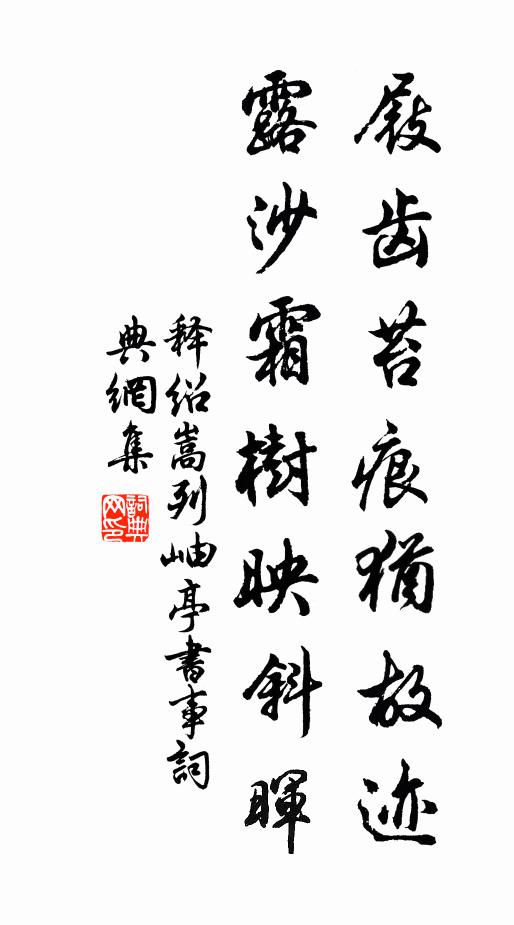 屐齿苔痕猶故迹
露沙霜樹映斜暉
释绍嵩列岫亭書事詞
典網集
詞典網印